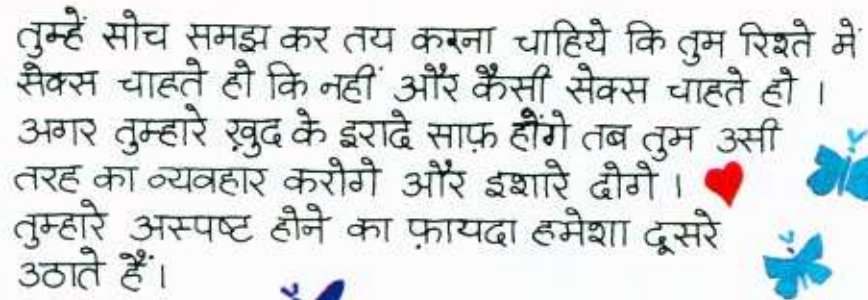 तुम्हें सोच समझ कर तय करना चाहिये कि तुम रिश्ते में
सेक्स चाहते हो कि नहीं और कैसी सेक्स चाहते हो ।
अगर तुम्हारे ख़ुद के इरादे साफ़ होंगे तब तुम उसी
तरह का व्यवहार करोगे और इशारे दोगे ।
तुम्हारे अस्पष्ट होने का फ़ायदा हमेशा दूसरे
उठाते हैं।